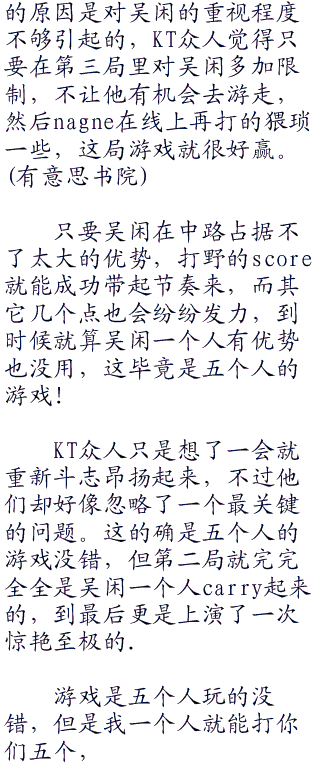 的原因是对吴闲的重视程度
不够引起的，KT众人觉得只
要在第三局里对吴闲多加限
制，不让他有机会去游走，
然后nagne在线上再打的猥琐
一些，这局游戏就很好赢。
(有意思书院)
只要吴闲在中路占据不
了太大的优势，打野的score
就能成功带起节奏来，而其
它几个点也会纷纷发力，到
时候就算吴闲一个人有优势
也没用，这毕竟是五个人的
游戏!
KT众人只是想了一会就
重新斗志昂扬起来，不过他
们却好像忽略了一个最关键
的问题。这的确是五个人的
游戏没错，但第二局就完完
全全是吴闲一个人carry起来
的，到最后更是上演了一次
惊艳至极的.
游戏是五个人玩的没
错，但是我一个人就能打你
们五个，